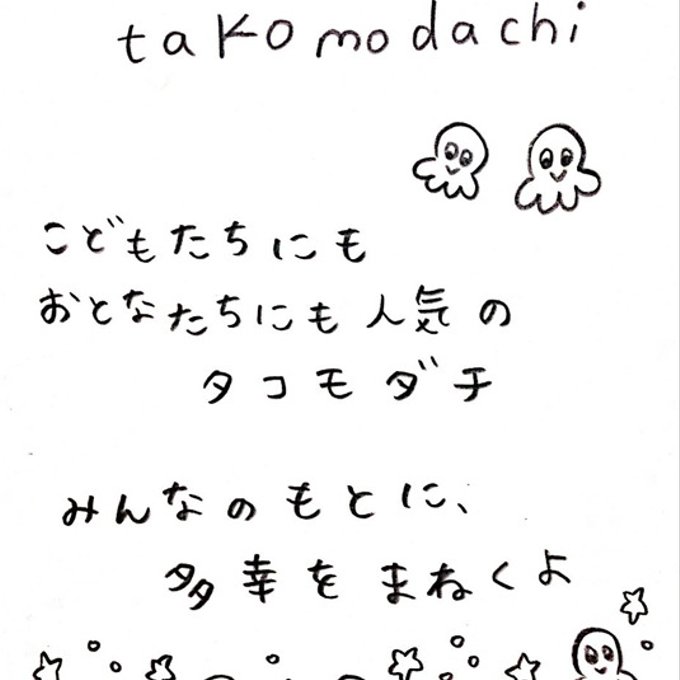 takomodachi
こどもたちにも
おとなたちにも人気の
タコモダチ
みんなのもとに、
多幸をまねくよ